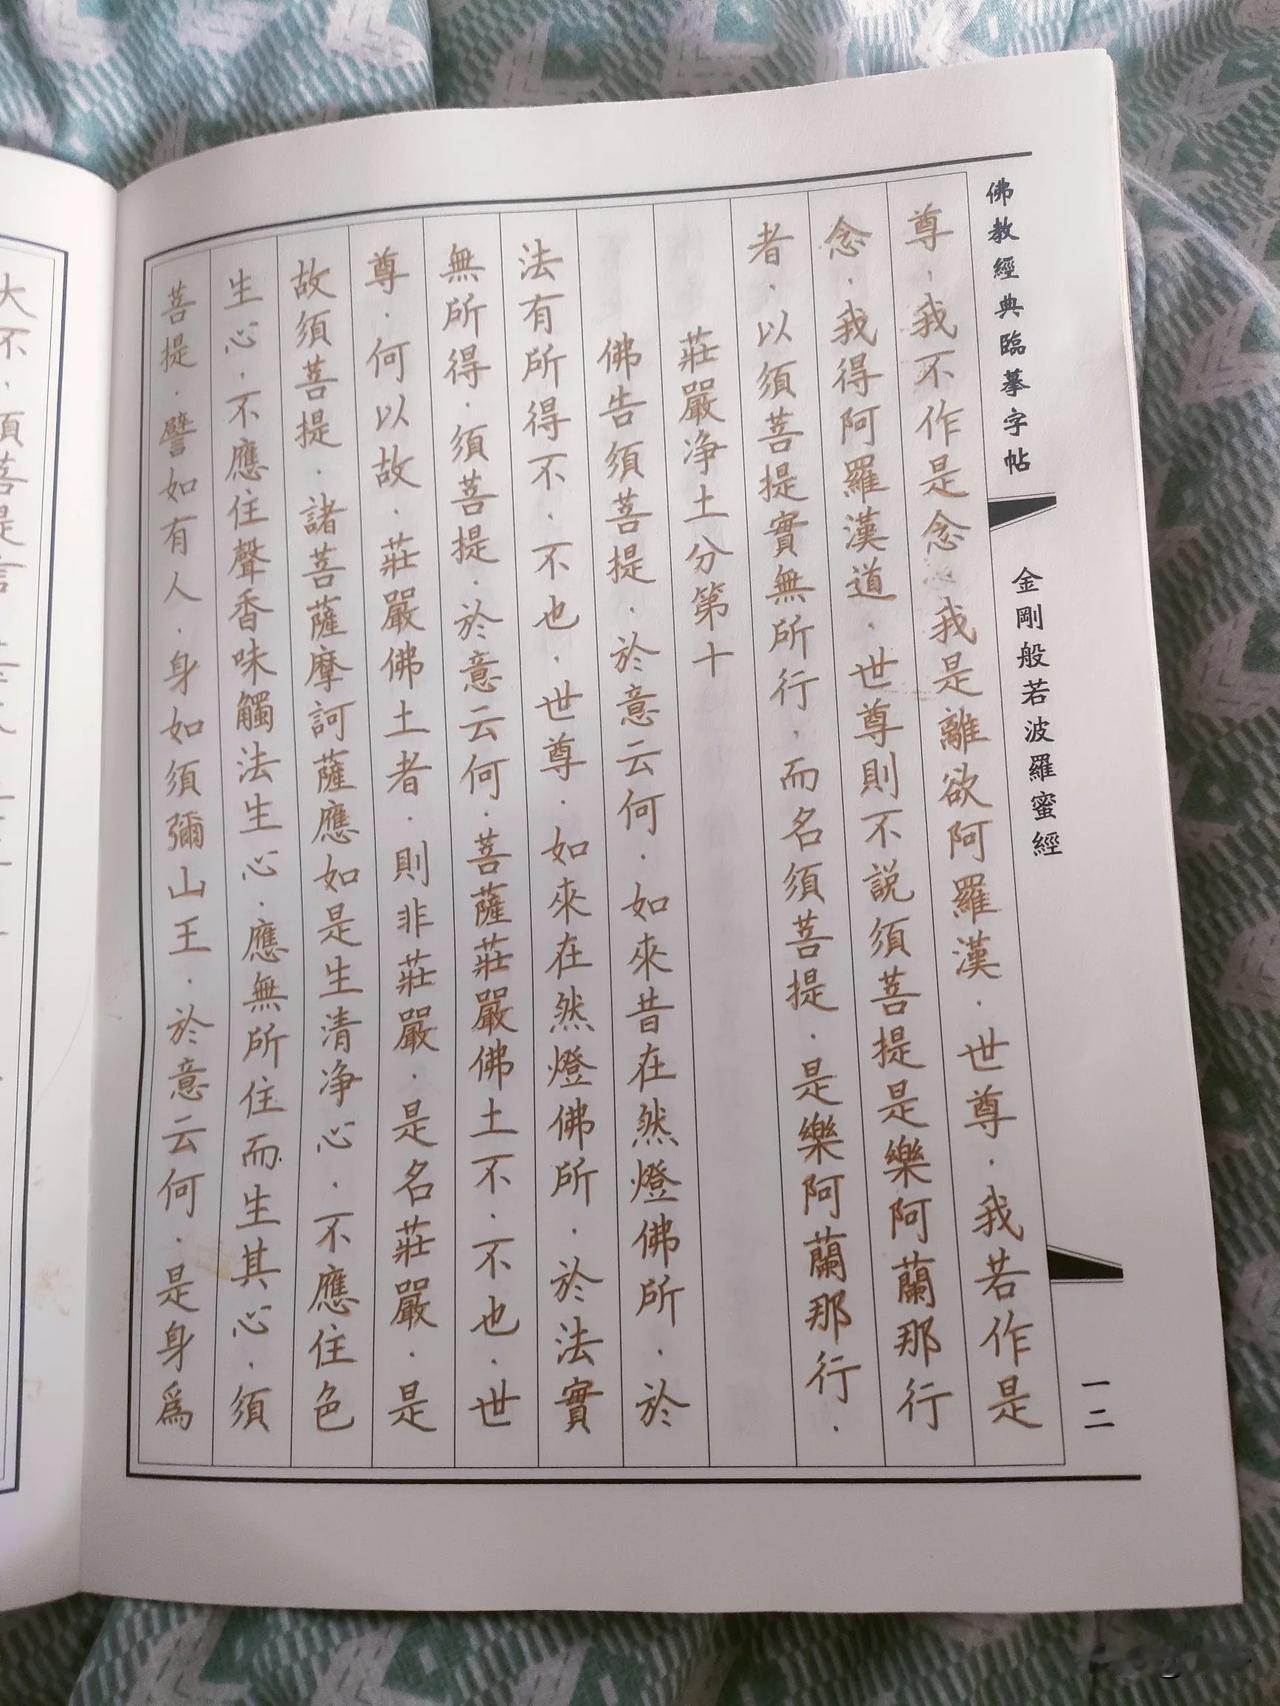 佛教經典臨摹字帖
金剛般若波羅蜜經
一二
尊．我不作是念．我是離欲阿羅漢．世尊．我若作是
念．我得阿羅漢道．世尊則不說須菩提是樂阿蘭那行
者．以須菩提實無所行．而名須菩提．是樂阿蘭那行．
莊嚴净土分第十
佛告須菩提．於意云何．如來昔在然燈佛所．於
法有所得不．不也．世尊．如來在然燈佛所．於法實
無所得．須菩提．於意云何．菩薩莊嚴佛土不．不也．世
尊．何以故．莊嚴佛土者．則非莊嚴．是名莊嚴．是
故須菩提．諸菩薩摩訶薩應如是生清净心．不應住色
生心．不應住聲香味觸法生心．應無所住而生其心．須
菩提．譬如有人．身如須彌山王．於意云何．是身爲